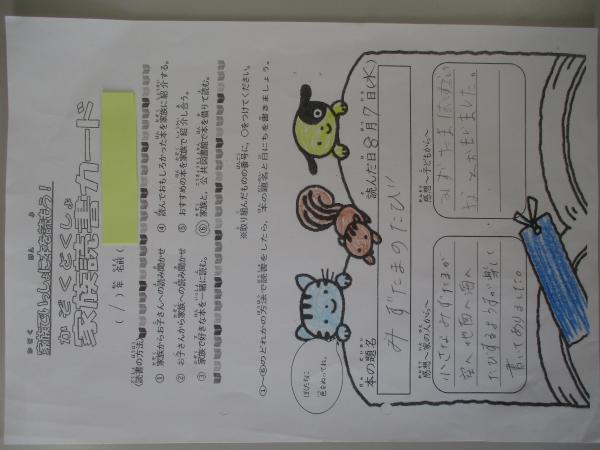 家族でいっしょに本を読もう！
かぞくどくしょ
家族読書カード
( 1 ) 年 名前 (
(読書の方法)
① 家族からお子さんへの読み聞かせ
② お子さんから家族への読み聞かせ
③ 家族で好きな本を一緒に読む。
④ 読んでおもしろかった本を家族に紹介する。
⑤ おすすめの本を家族で紹介し合う。
⑥ 家族と、公共図書館で本を借りて読む。
※取り組んだものの番号に、○をつけてください。
①～⑥のどれかの方法で読書をしたら、本の題名と日にちを書きましょう。
ほしたなに
色をぬってね。
本の題名
みずたまのたび
読んだ日 8月7日(水)
感想～家の人から～
小さなみずたまが
空へ 地面へ 海へ
たびするようすが楽しく
書いてありました。
感想～子どもから～
なとおもいました。